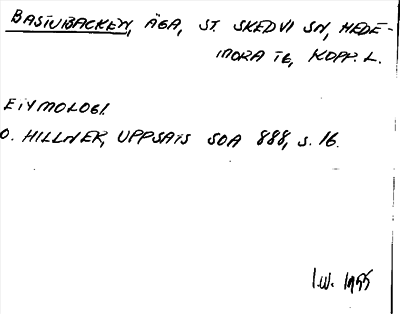 BASTUBACKEN, ÄGA, ST. SKEDVI SN, HEDE-
MORA TG, KOPP. L.
ETYMOLOGI.
O. HILLNER, UPPSATS SOA 888, s. 16.
I.W. 1955